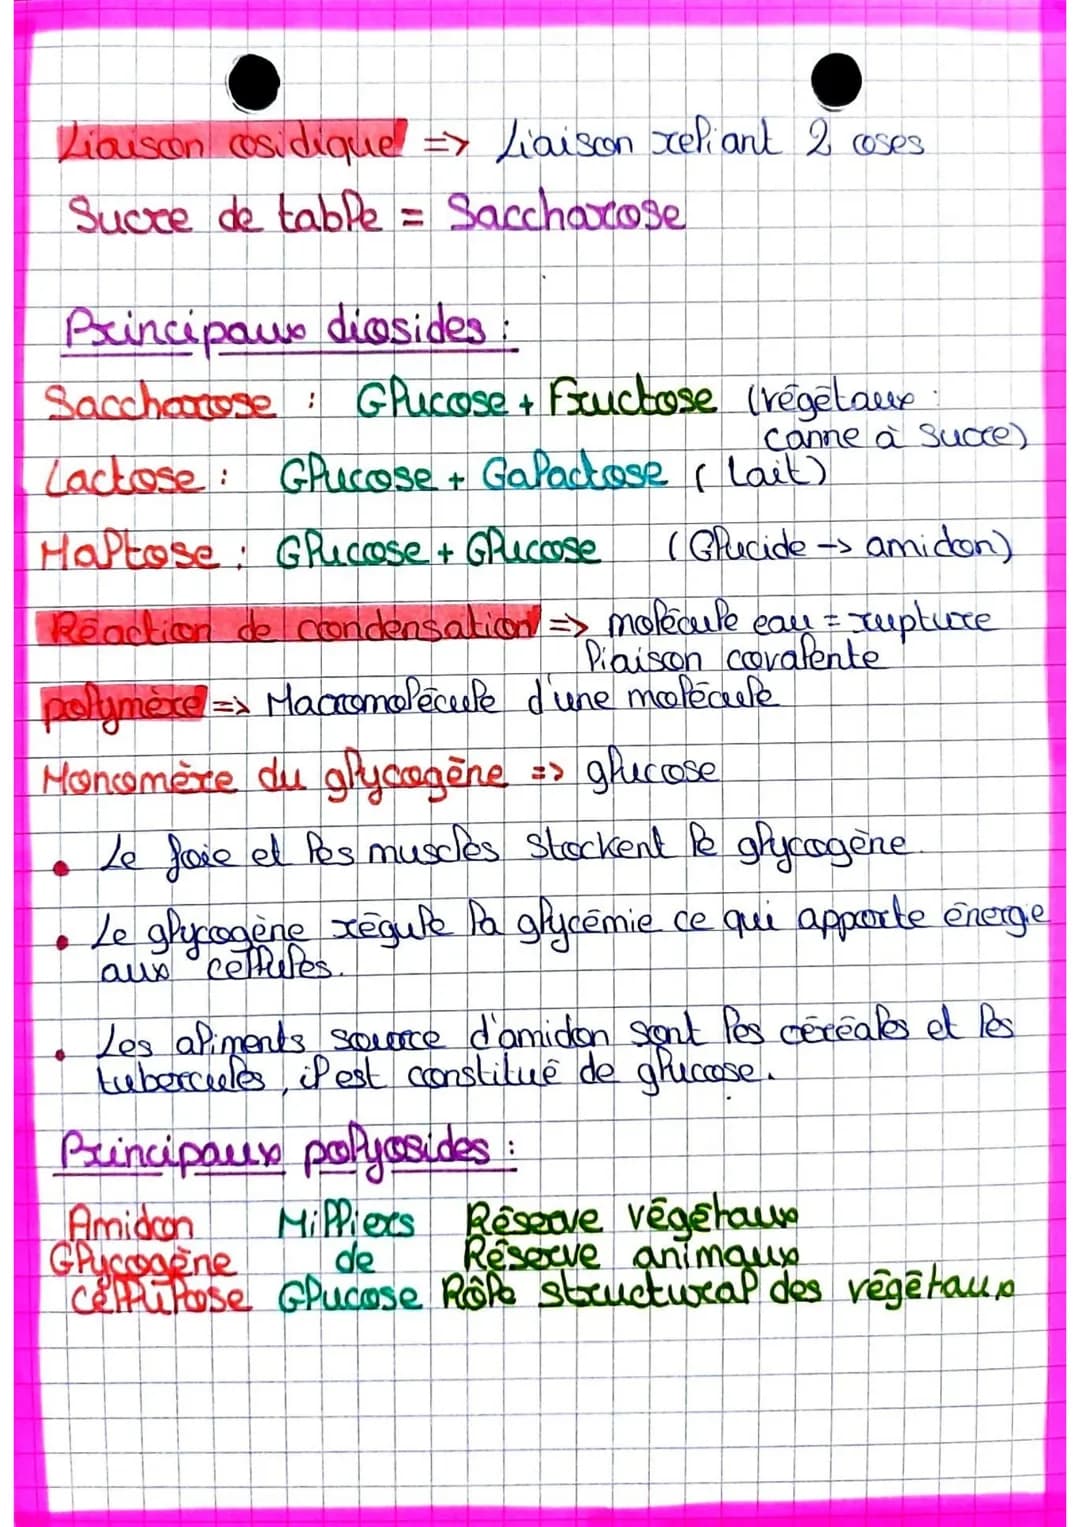 Liaison osidique => Liaison reliant 2 oses
Sucre de table = Saccharose
Principaux diosides :
Saccharose : Glucose + Fructose (végétaux :
canne à sucre)
Lactose : Glucose + Galactose ( lait)
Maltose : Glucose + Glucose (Glucide -> amidon)
Réaction de condensation => molécule eau = rupture
liaison covalente
polymère => Macromolécule d'une molécule
Monomère du glycogène => glucose
• Le foie et les muscles stockent le glycogène.
• Le glycogène régule la glycémie ce qui apporte énergie
aux cellules.
• Les aliments source d'amidon sont les céréales et les
tubercules, il est constitué de glucose.
Principaux polyosides :
Amidon Milliers Réserve végétaux
Glycogène de Réserve animaux
Cellulose Glucose Rôle structural des végétaux